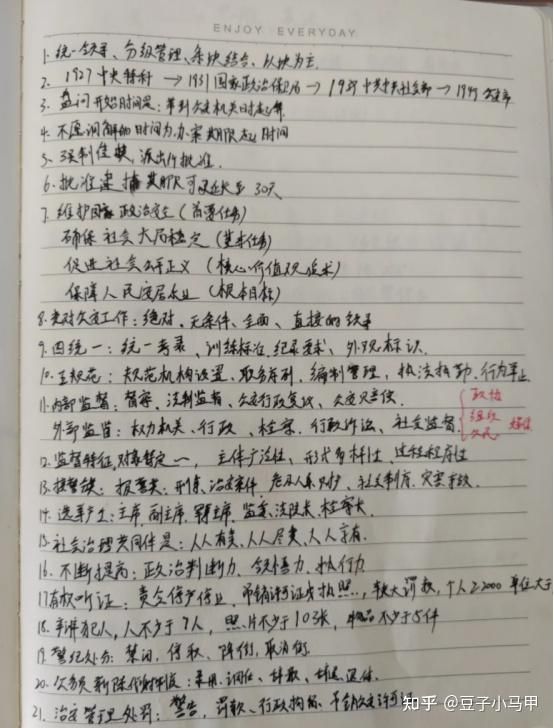 ENJOY EVERYDAY
1. 统一领导、分级管理、条块结合、以块为主.
2. 1927中央特科 → 1931国家政治保卫局 → 1939中共中央社会部 → 1949公安部
3. 盘问开始时间是: 带到公安机关时起算
4. 不愿调解的时间为办案期限起时间
5. 强制传唤, 派出所批准.
6. 批准逮捕期限可延长至 30天
7. 维护国家政治安全 (首要任务)
确保社会大局稳定 (基本任务)
促进社会公平正义 (核心价值观追求)
保障人民安居乐业 (根本目标)
8. 党对公安工作: 绝对、无条件、全面、直接的领导
9. 四统一: 统一考录、训练标准、纪录要求、外观标识.
10. 五规范: 规范机构设置、职务序列、编制管理、执法执勤、行为举止.
11. 内部监督: 督察、法制监督、公安行政复议、公安国家赔偿
外部监督: 权力机关、行政、检察、行政诉讼、社会监督
政协
组织
公民
媒体
12. 监督特征, 对象特定一、主体广泛性、形式多样性、过程程序性
13. 接警类: 报警类: 刑事、治安案件、危及人身财产、社会制序、灾害事故.
14. 选举产生: 主席、副主席、军事主席、监委、法院长、检察长.
15. 社会治理共同体是: 人人有责、人人尽责、人人享有.
16. 不断提高: 政治判断力、领悟力、执行力
17. 有权听证: 责令停产停业、吊销许可证与执照、较大罚款, 个人≥2000 单位大于
18. 辨认犯人, 人不少于7人, 照片不少于10张, 物品不少于5件
19. 警纪处分: 禁闭、停职、降衔、取消衔
20. 公务员新陈代谢制度: 录用、调任、辞职、辞退、退休.
21. 治安管理处罚: 警告、罚款、行政拘留、吊销公安许可证
知乎 @豆子小马甲